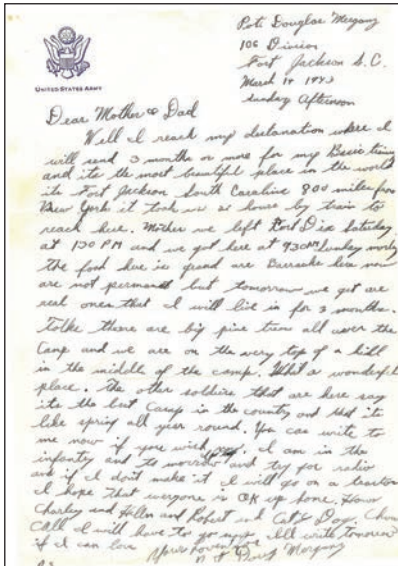 Pvt. Douglas Morganz
106 Division
Fort Jackson S.C.
March 14 1943
Sunday Afternoon
UNITED STATES ARMY
Dear Mother & Dad
Well I reach my destanation where I
will send 3 months or more for my Basic training
and its the most beautiful place in the world
its Fort Jackson South Carolina 800 miles from
New York it took us 21 hours by train to
reach here. Mother we left Fort Dix Saturday
at 130 PM and we got here at 930AM Sunday morning
the food here is grand are Barracks here now
are not permanent but tomorrow we get are
real ones that I will live in for 3 months.
Folks there are big pine trees all over the
Camp and we are on the very top of a hill
in the middle of the camp. What a wonderful
place. The other soldiers that are here say
its the best Camp in the country and that its
like spring all year round. You can write to
me now if you wish. I am in the
infantry and to morrow and try for radio
and if I dont make it I will go on a
I hope that everyone is OK up home. How
Charley and Hellen and Robert and Cat & Dogs
I will have to go now Ill write tomorrow
if I can love
Doug Morganz